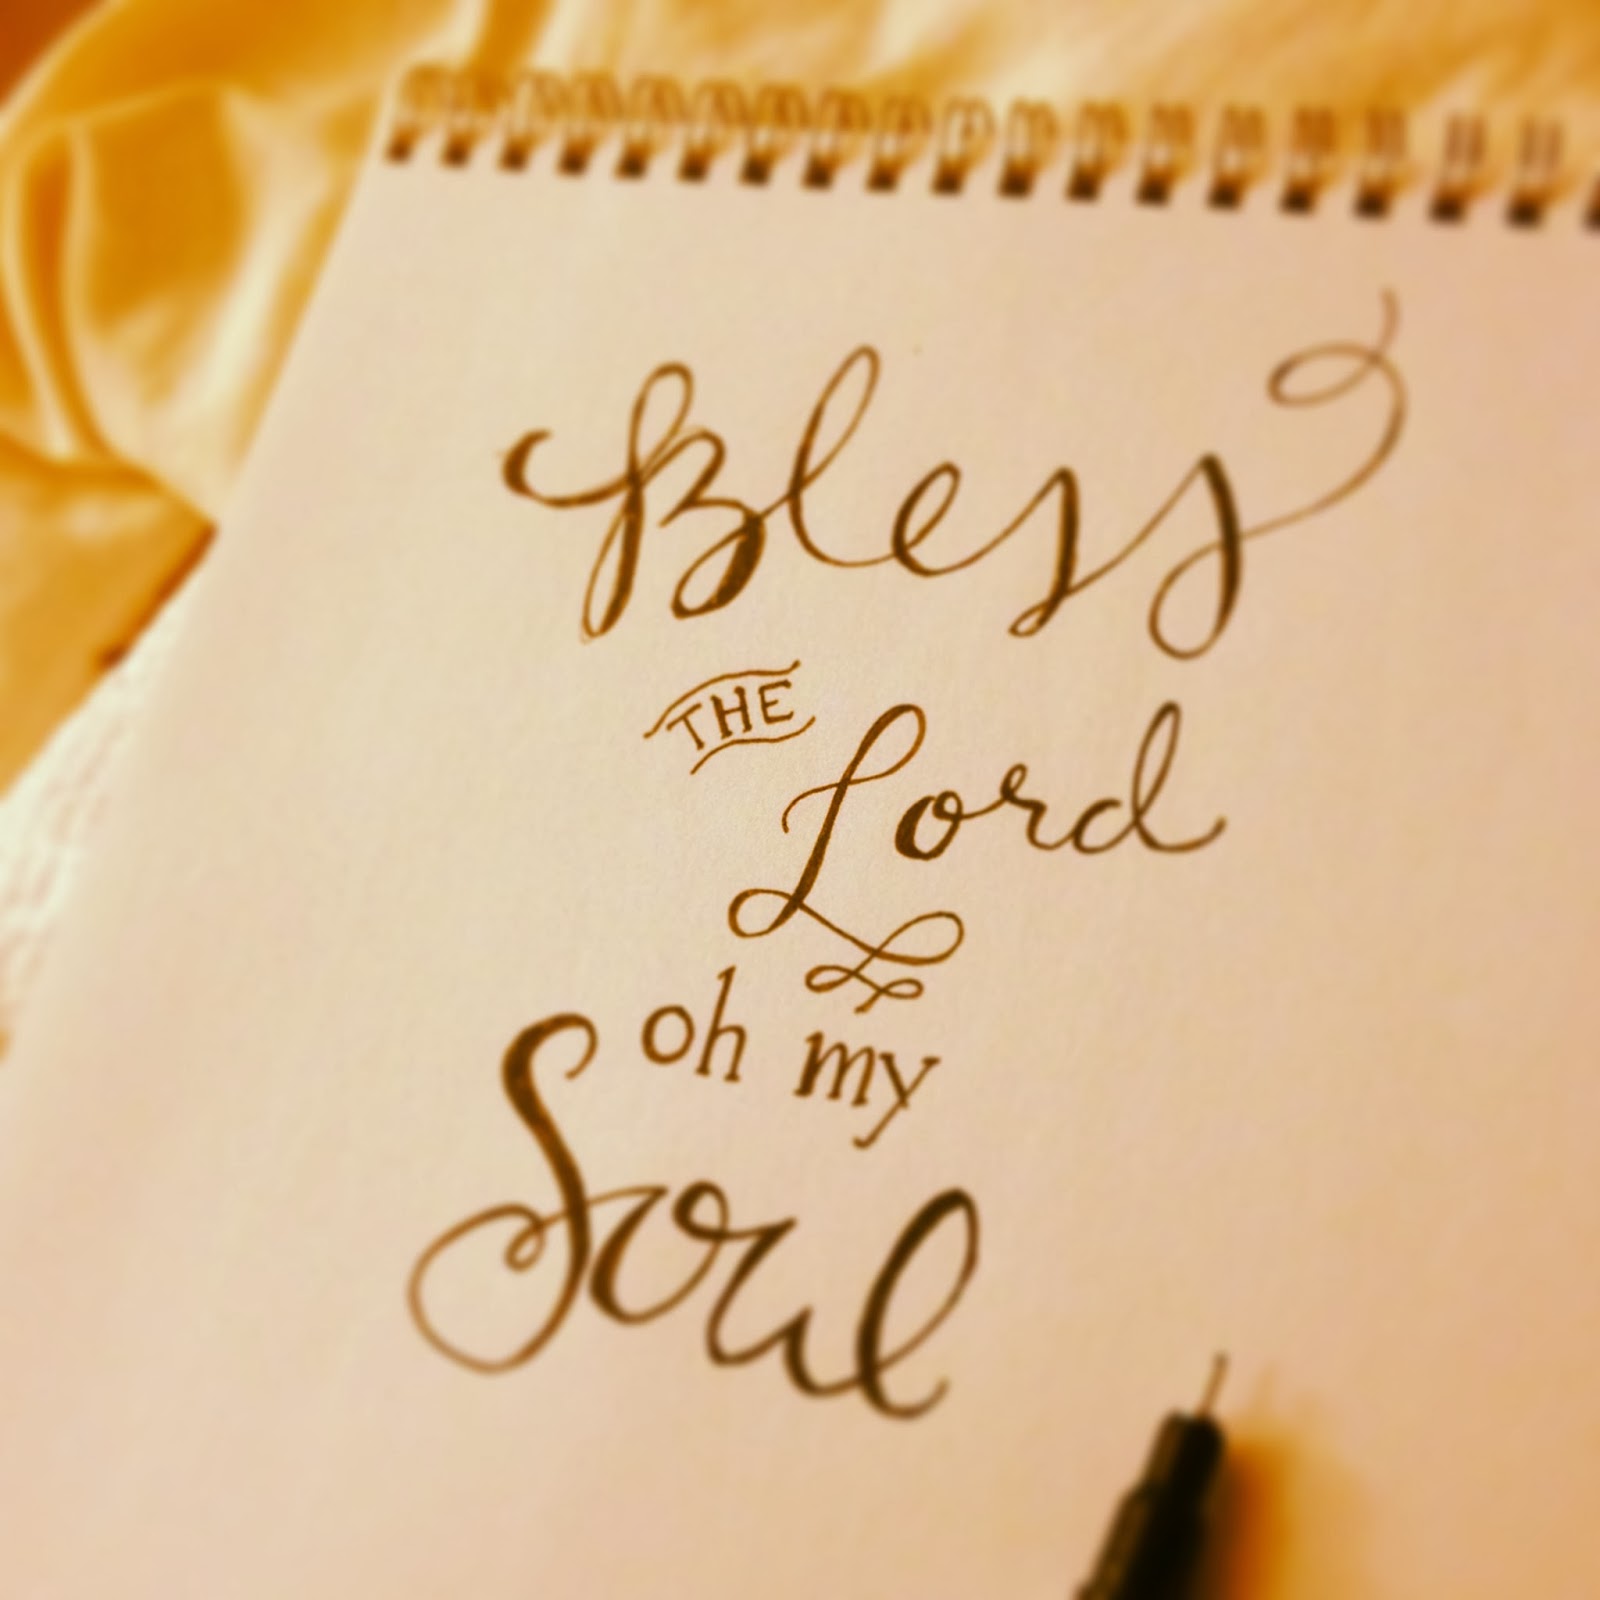 Bless
THE Lord
oh my
Soul